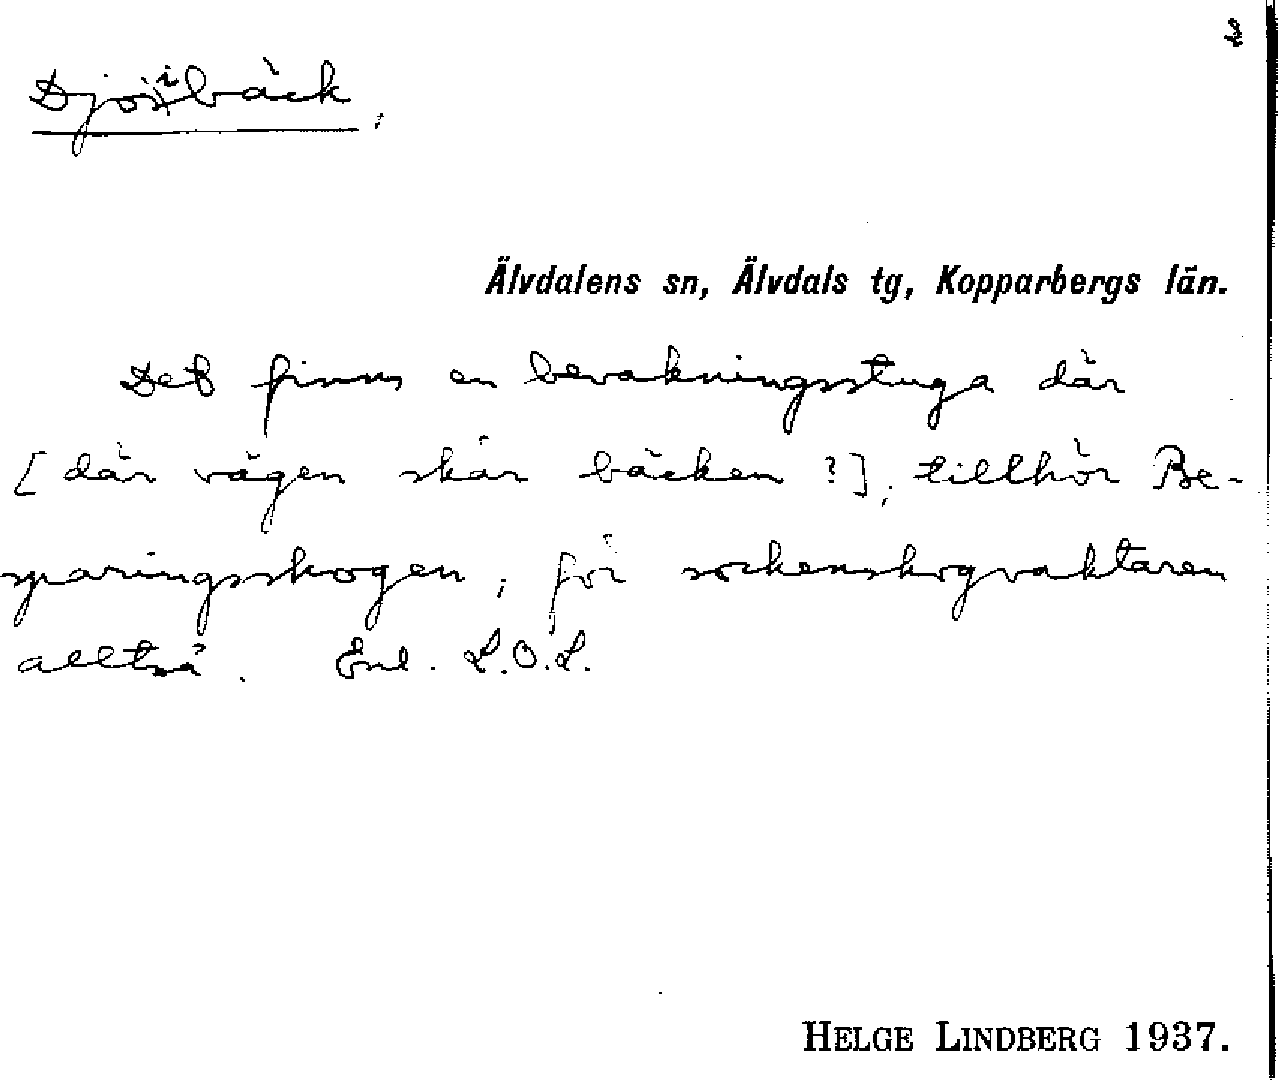 2
Djöibäck,
Älvdalens sn, Älvdals tg, Kopparbergs län.
Det finns en bevakningsstuga där
[där vägen skär bäcken?], tillhör Be-
sparingsskogen, för sockenskogvaktaren
alltså. Enl. L.O.L.
HELGE LINDBERG 1937.